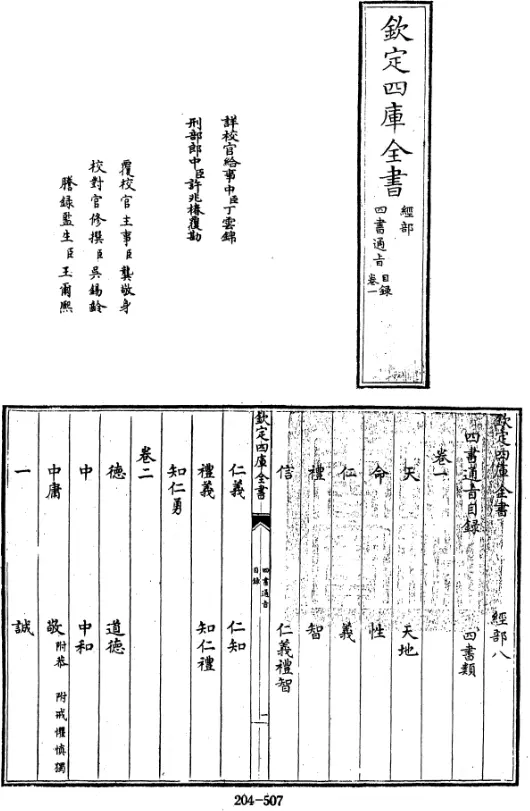 欽定四庫全書
經部
四書通旨
目錄
卷一
詳校官給事中臣丁雲錦
刑部郎中臣許兆椿覆勘
覆校官主事臣龔敬身
校對官修撰臣吳錫齡
謄錄監生臣王爾熙
欽定四庫全書 經部八
四書通旨目錄 四書類
卷一
天 天地
命 性
仁 義
禮 智
信 仁義禮智
欽定四庫全書
四書通旨
目錄
一
仁義 仁知
禮義 知仁禮
知仁勇
卷二
德 道德
中 中和
中庸 敬 附恭 附戒懼慎獨
一 誠
204-507